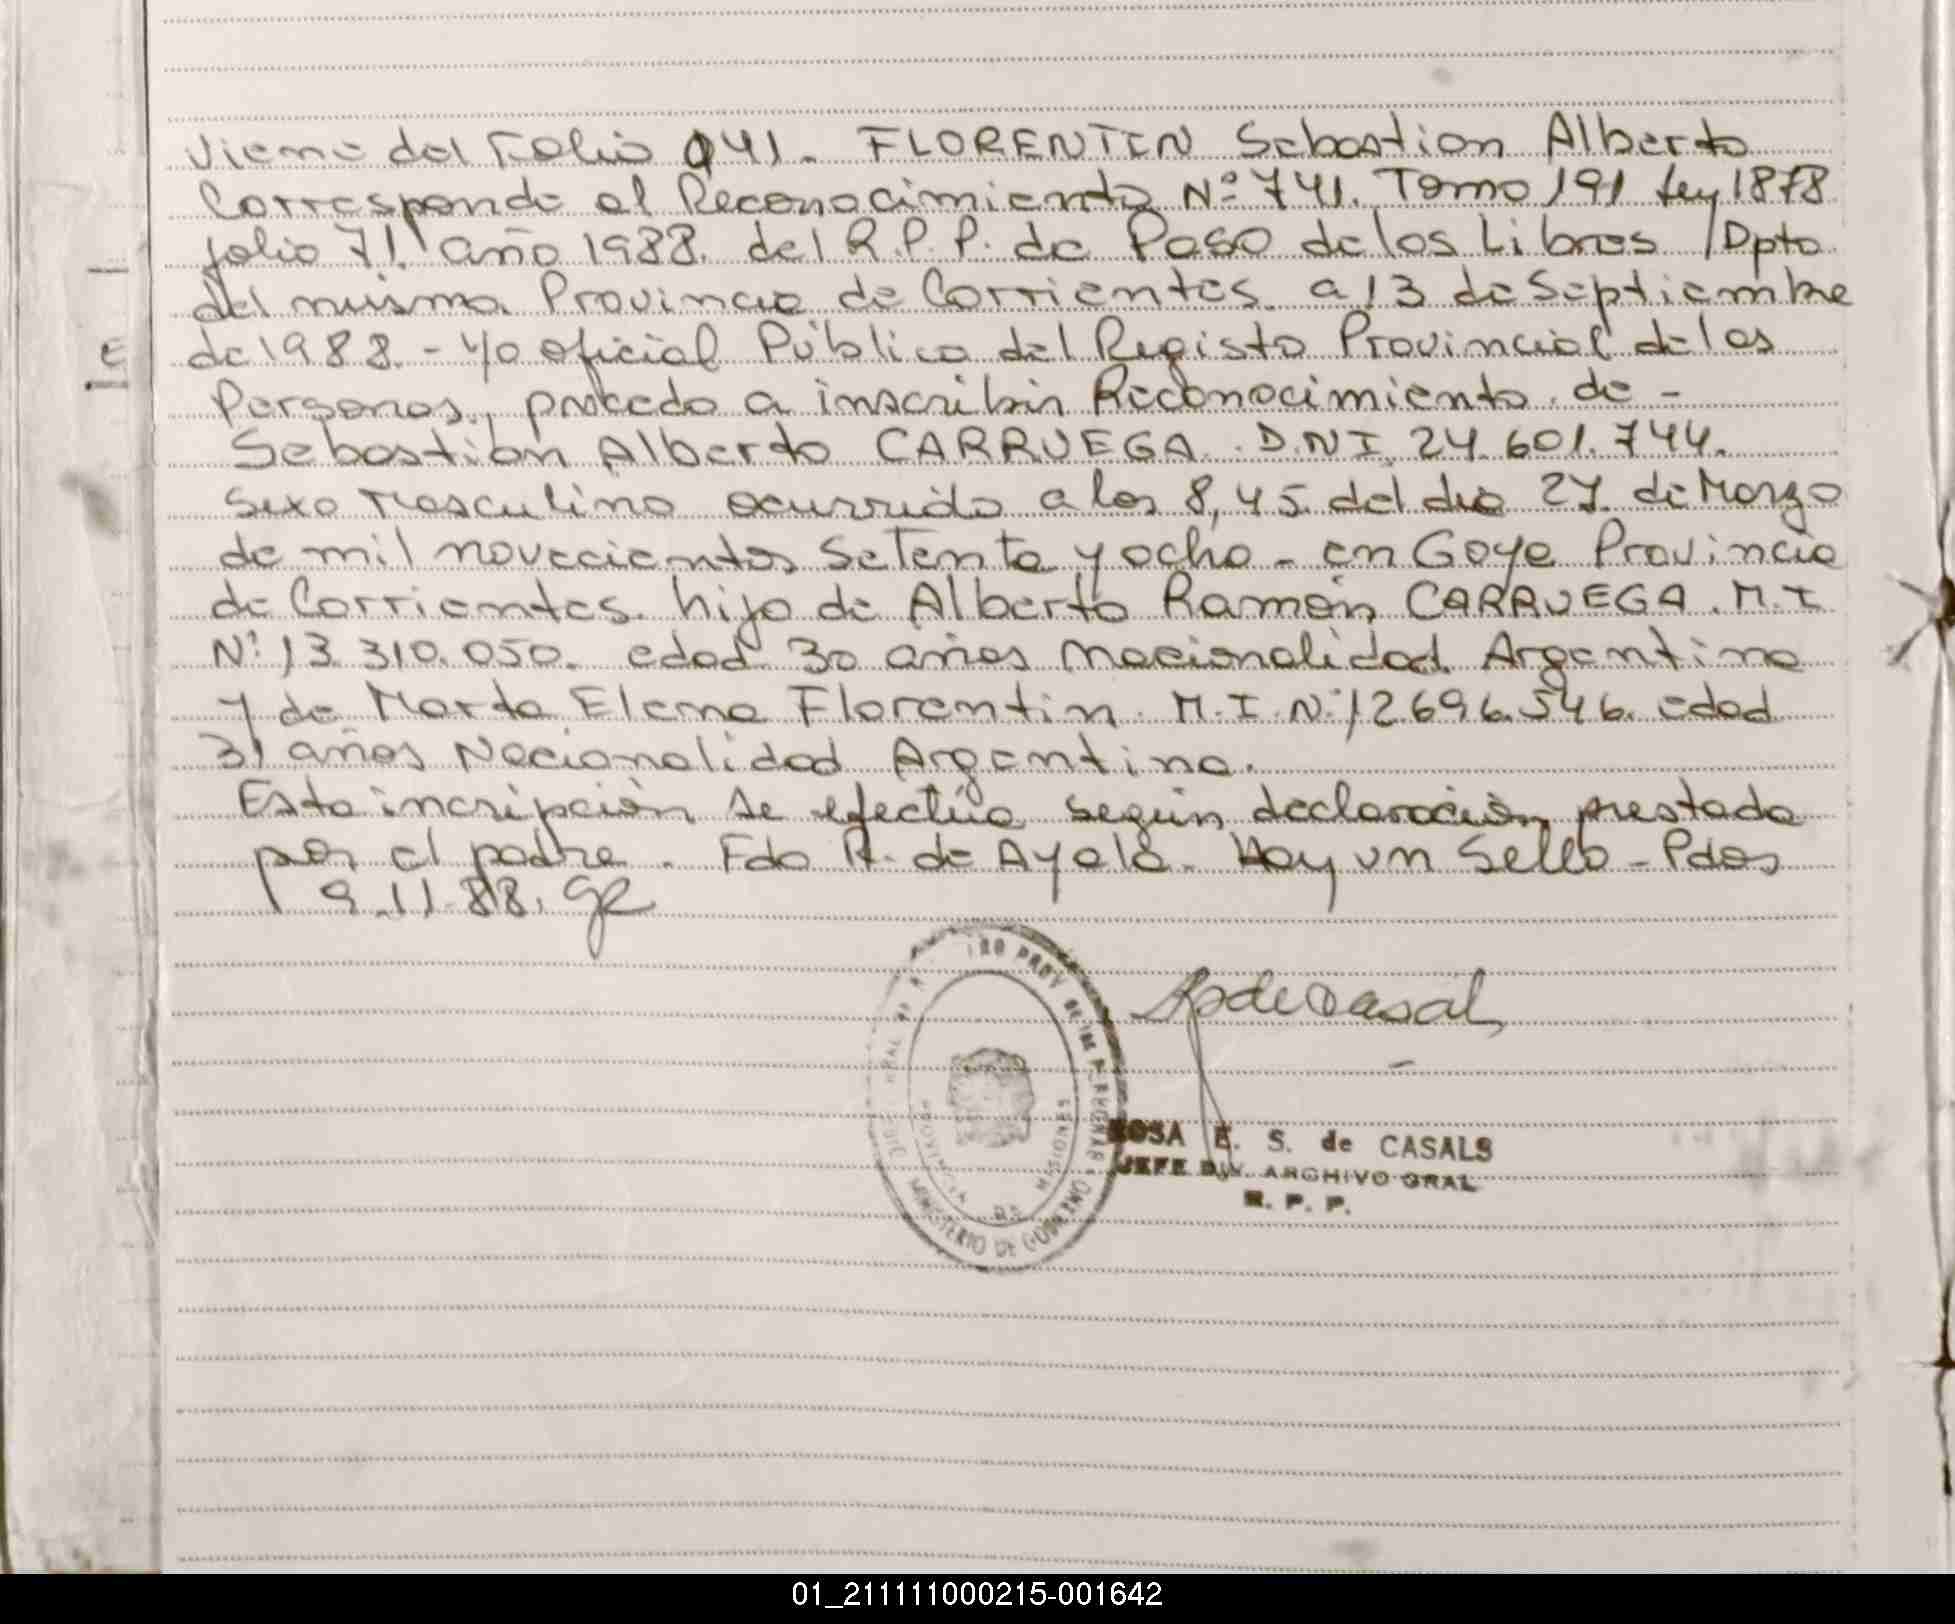 Viene del Folio 041. FLORENTIN Sebastian Alberto
Corresponde al Reconocimiento Nº 741. Tomo 191 Ley 1878
folio 71. año 1988. del R.P.P. de Paso de los Libres / Dpto
del mismo Provincia de Corrientes. a 13 de Septiembre
de 1988. - Yo oficial Público del Registo Provincial de las
Personas, procedo a inscribir Reconocimiento de -
Sebastián Alberto CARRUEGA. D.N.I. 24.601.744.
sexo Masculino ocurrido a las 8,45 del dia 27 de Marzo
de mil novecientos setenta y ocho - en Goya Provincia
de Corrientes. hijo de Alberto Ramón CARRUEGA. M.I
Nº 13.310.050. edad 30 años nacionalidad Argentina
y de Marta Elena Florentin. M.I. Nº 12.696.546. edad
31 años Nacionalidad Argentina.
Esta incripción se efectúa según declaración prestada
por el padre. Fdo R. de Ayala. Hay un Sello - Pdas
9.11.88.
PROV DE LAS PERSONAS
MINISTERIO DE GOBIERNO
PROVINCIA DE MISIONES
ROSA E. S. de CASALS
JEFE DIV. ARCHIVO GRAL
R. P. P.
E
01_211111000215-001642